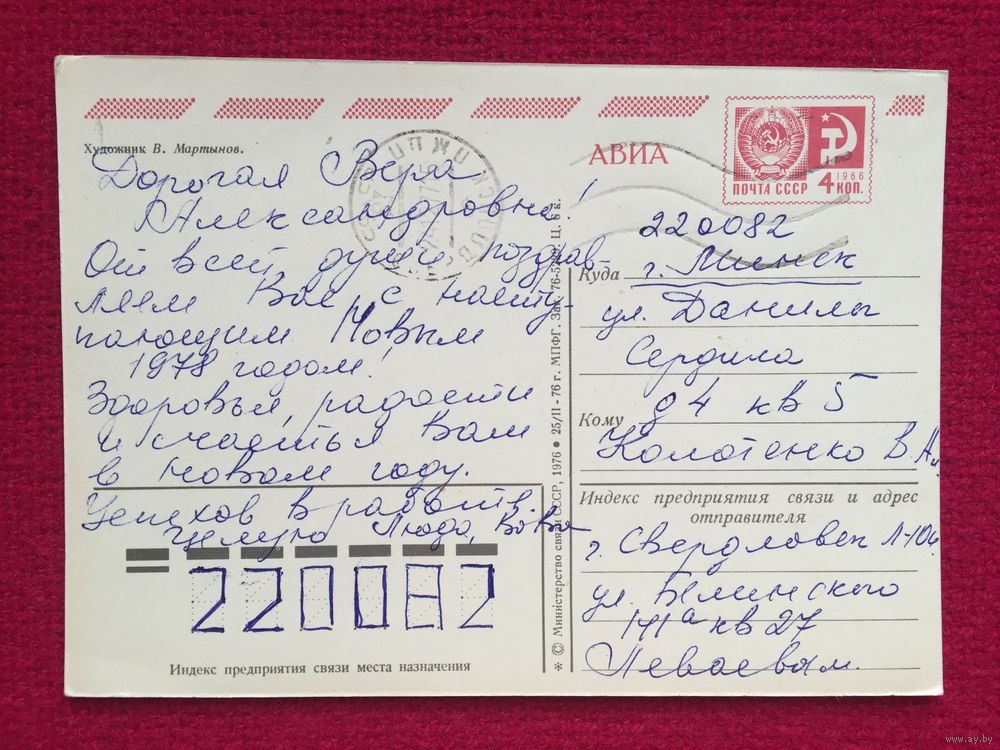 Художник В. Мартынов.
АВИА
1966
ПОЧТА СССР 4 КОП.
Дорогая Вера
Александровна!
От всей души поздрав-
ляем Вас с насту-
пающим Новым
1978 годом.
Здоровья, радости
и счастья Вам
в Новом году.
Успехов в работе.
Целую Люда, Вова
220082
Индекс предприятия связи места назначения
✶ © Министерство связи СССР, 1976 ● 25/II - 76 г. МПФГ. Зак. Ц. 6 к.
220082
Куда г. Минск
ул. Данилы
Сердича
д 4 кв 5
Кому
Колотенко В. Ал.
Индекс предприятия связи и адрес
отправителя
г. Свердловск
ул. Белинского
кв 27
www.ay.by